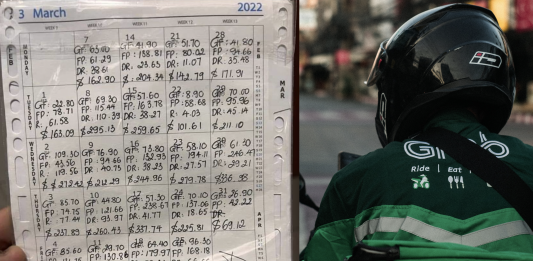 3 March 2022
WEEK 9 WEEK 10 WEEK 11 WEEK 12 WEEK 13
FEB
MONDAY
7
GF: 63.00
FP: 61.29
DR: 38.61
$ 162.90
14
GF: 41.90
FP: 138.81
DR: 23.63
$ 204.34
21
GF: 51.70
FP: 80.02
DR: 11.07
$ 142.79
28
GF: 41.80
FP: 94.66
DR: 35.48
$ 171.91
FEB
MAR
TUESDAY
1
GF: 22.80
FP: 78.71
R: 61.58
$ 163.09
8
GF: 69.30
FP: 115.44
DR: 110.39
$ 295.13
15
GF: 57.60
FP: 163.78
DR: 38.27
$ 259.65
22
GF: 8.90
FP: 88.68
R: 4.03
$ 101.61
GF: 70.00
FP: 95.96
DR: 45.14
$ 211.10
WEDNESDAY
2
GF: 109.30
FP: 43.56
R: 119.56
$ 272.42
9
GF: 76.90
FP: 94.66
DR: 40.73
$ 212.29
GF: 73.80
FP: 132.93
DR: 38.23
$ 244.96
23
GF: 58.10
FP: 194.11
DR: 27.57
$ 279.78
FP: 246.47
DR: 29.21
$ 336.98
THURSDAY
GF: 85.70
FP: 74.75
R: 77.44
$ 237.89
10
GF: 44.80
FP: 121.66
DR: 93.97
$ 260.43
GF: 57.30
FP: 238.67
DR: 41.77
$ 337.74
GF: 70.10
FP: 137.06
DR: 18.65
$ 225.81
GF: 26.90
FP: 42.22
DR: -
$ 69.12
APR
4
GF: 85.60
GF: 29.70
FP: 130.86
GF: 64.40
FP: 179.97
GF: 96.30
FP: 168.18
Grab
Ride | Eat